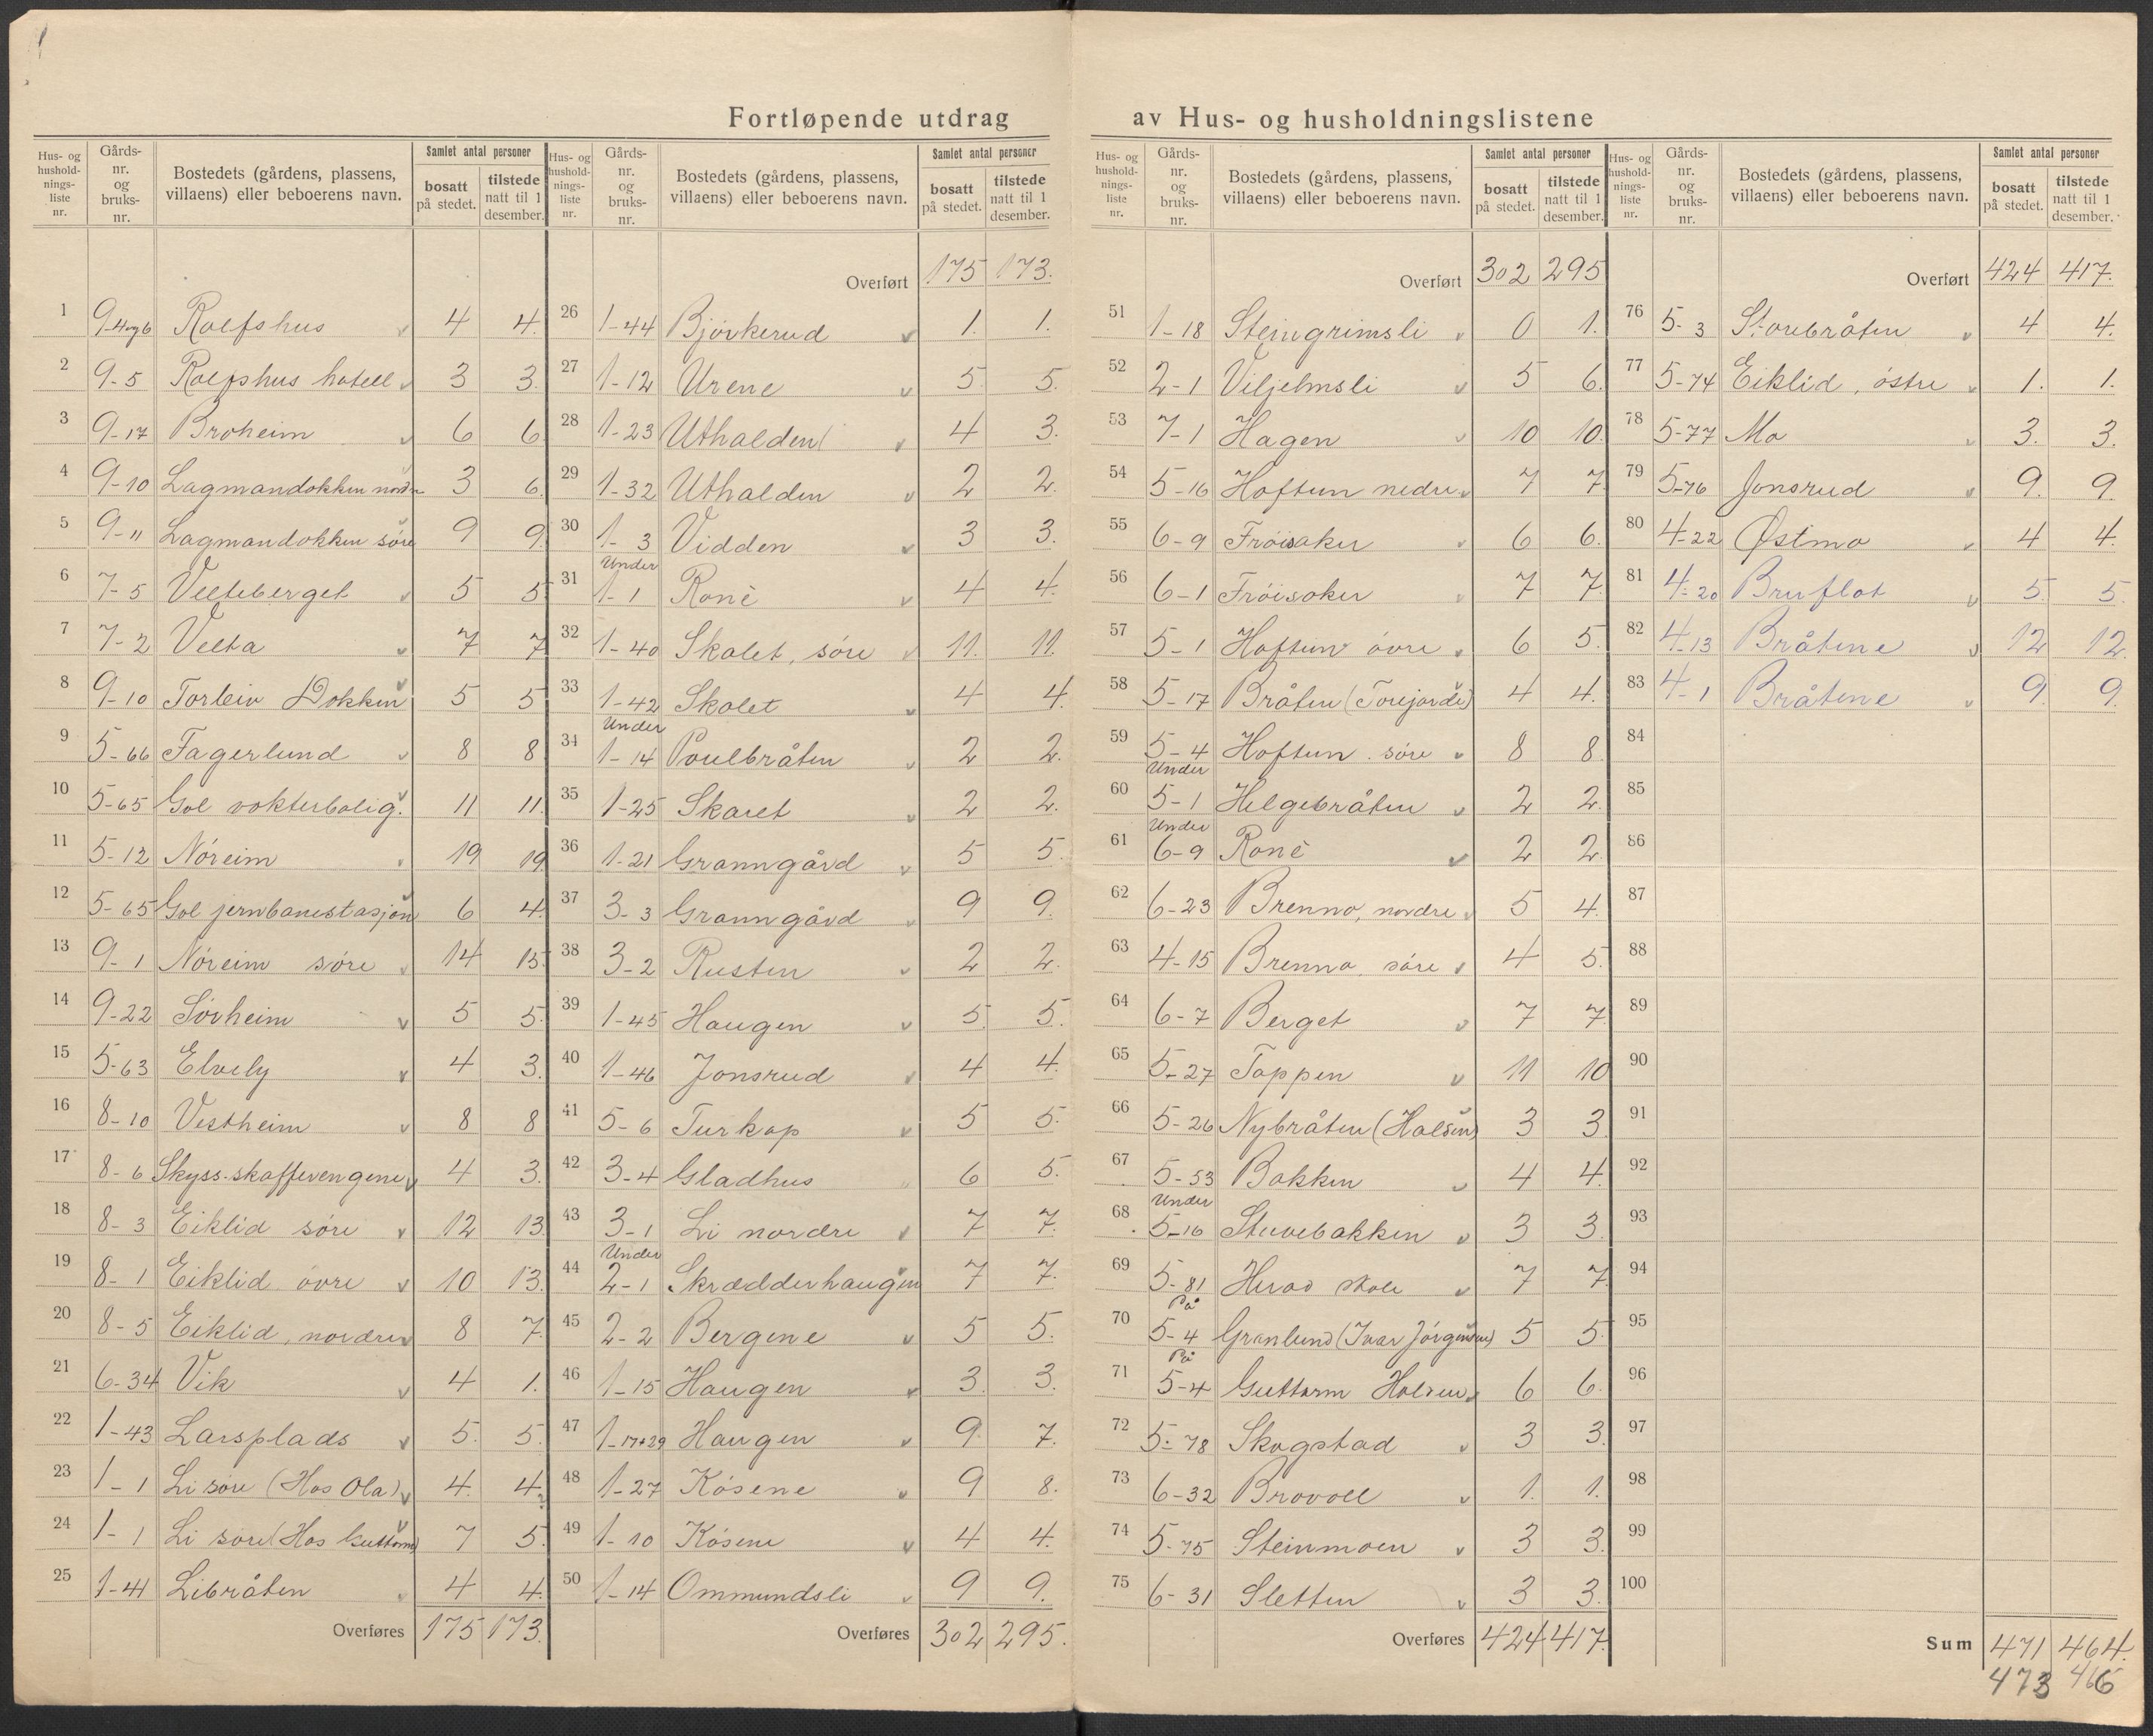 Fortløpende utdrag av Hus- og husholdningslistene
Hus- og husholdningsliste nr. | Gårdsnr. og bruksnr. | Bostedets (gårdens, plassens, villaens) eller beboerens navn. | Samlet antal personer | bosatt på stedet. | tilstede natt til 1 desember.
1 9-4og6 Rolfshus 4 4.
2 9-5 Rolfshus hotell 3 3.
3 9-17 Broheim 6 6
4 9-10 Lagmandokken nordre 3 6
5 9-11 Lagmandokken søre 9 9
6 7-5 Velteberget 5 5
7 7-2 Velta 7 7
8 9-10 Torleiv Dokken 5 5
9 5-66 Fagerlund 8 8
10 5-65 Gol vokterbolig. 11 11.
11 5-12 Nóreim 19 19
12 5-65 Gol jernbanestasjon 6 4.
13 9-1 Nóreim søre 14 15
14 9-22 Sørheim 5 5.
15 5-63 Elvely 4 3.
16 8-10 Vestheim 8 8
17 8-6 Skyss-skaffevengene 4 3.
18 8-3 Eiklid søre 12 13
19 8-1 Eiklid øvre 10 13.
20 8-5 Eiklid, nordre 8 7.
21 6-34 Vik 4 1.
22 1-43 Larsplads 5. 5.
23 1-1 Li søre (Hos Ola) 4. 4.
24 1-1 Li søre (Hos Guttorm) 7 5.
25 1-41 Libråten 4 4.
Overføres 175 173.
Overført 175 173.
26 1-44 Bjørkerud 1. 1.
27 1-12 Urene 5 5.
28 1-23 Uthalden 4 3.
29 1-32 Uthalden 2 2.
30 1-3 Vidden 3 3.
31 Under 1-1 Roné 4 4.
32 1-40 Skolet, søre 11. 11.
33 1-42 Skolet 4 4.
34 Under 1-14 Poulbråten 2 2.
35 1-25 Skaret 2 2.
36 1-21 Granngård 5 5.
37 3-3 Granngård 9 9.
38 3-2 Rusten 2 2.
39 1-45 Haugen 5. 5.
40 1-46 Jonsrud 4 4.
41 5-6 Turkop 5 5.
42 3-4 Gladhus 6 5.
43 3-1 Li nordre 7 7.
44 Under 2-1 Skrædderhaugen 7 7.
45 2-2 Bergene 5 5.
46 1-15 Haugen 3. 3.
47 1-17+29 Haugen 9. 7.
48 1-27 Kösene 9 8.
49 1-10 Kösene 4 4.
50 1-14 Ommundsli 9 9.
Overføres 302 295.
Overført 302 295
51 1-18 Steingrimsli 0 1.
52 2-1 Viljelmsli 5 6.
53 7-1 Hagen 10 10.
54 5-16 Hoftun nedre 7 7
55 6-9 Frøisaker 6 6.
56 6-1 Frøisaker 7 7.
57 5-1 Hoftun øvre 6 5.
58 5-17 Bråten (Torejorde) 4 4.
59 5-4 Hoftun søre 8 8.
60 Under 5-1 Helgebråten 2 2.
61 Under 6-9 Roné 2 2.
62 6-23 Brenno, nordre 5 4.
63 4-15 Brenno, søre 4 5.
64 6-7 Berget 7 7
65 5-27 Toppen 11 10
66 5-26 Nybråten (Halsen) 3 3.
67 5-53 Bakken 4 4.
68 Under 5-16 Stuvebakken 3 3.
69 5-81 Herad skole 7 7.
70 På 5-4 Granlund (Ivar Jørgensen) 5 5.
71 På 5-4 Guttorm Halsen 6 6.
72 5-78 Skogstad 3 3.
73 6-32 Brovoll 1. 1.
74 5-75 Steinmoen 3 3.
75 6-31 Sletten 3 3.
Overføres 424 417.
Overført 424 417.
76 5-3 Storebråten 4 4.
77 5-74 Eiklid, østre 1. 1.
78 5-77 Mo 3. 3.
79 5-76 Jonsrud 9. 9.
80 4-22 Østmo 4 4.
81 4-20 Bruflot 5. 5.
82 4-13 Bråtene 12 12.
83 4-1 Bråtene 9. 9.
84
85
86
87
88
89
90
91
92
93
94
95
96
97
98
99
100
Sum 471 464.
473 466